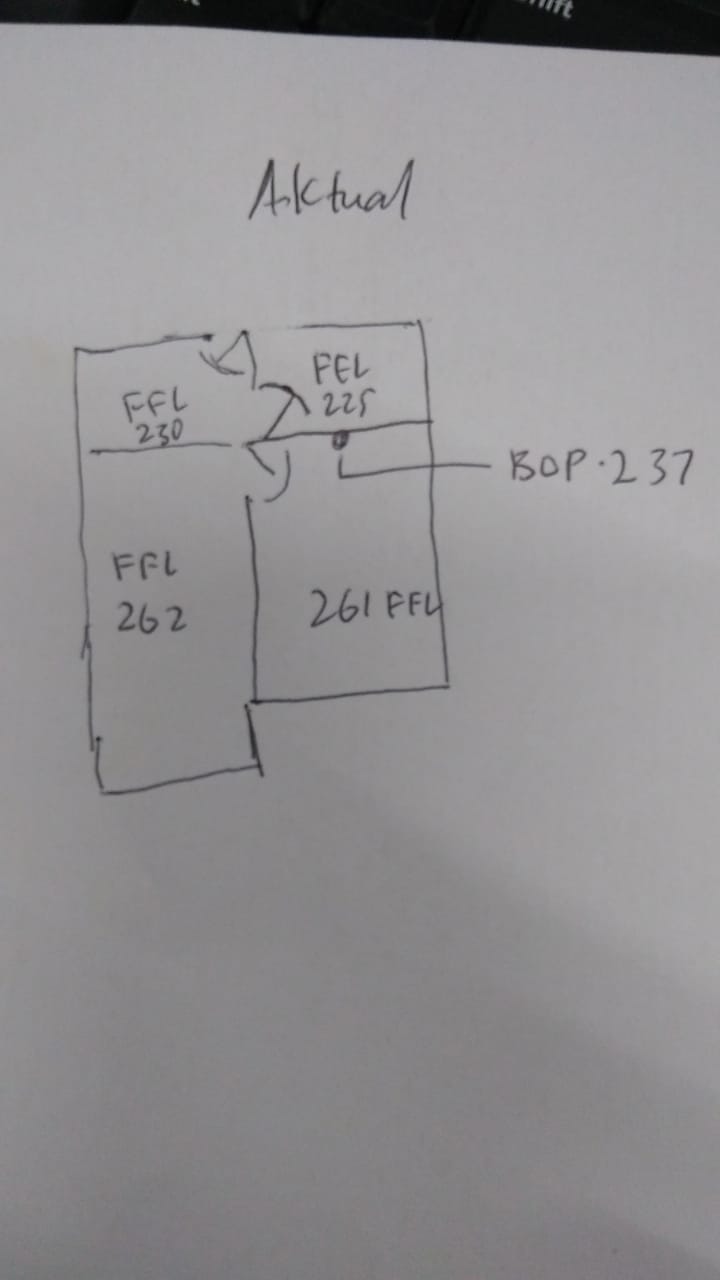 Aktual
FFL
230
FFL
225
BOP.237
FFL
262
261 FFL